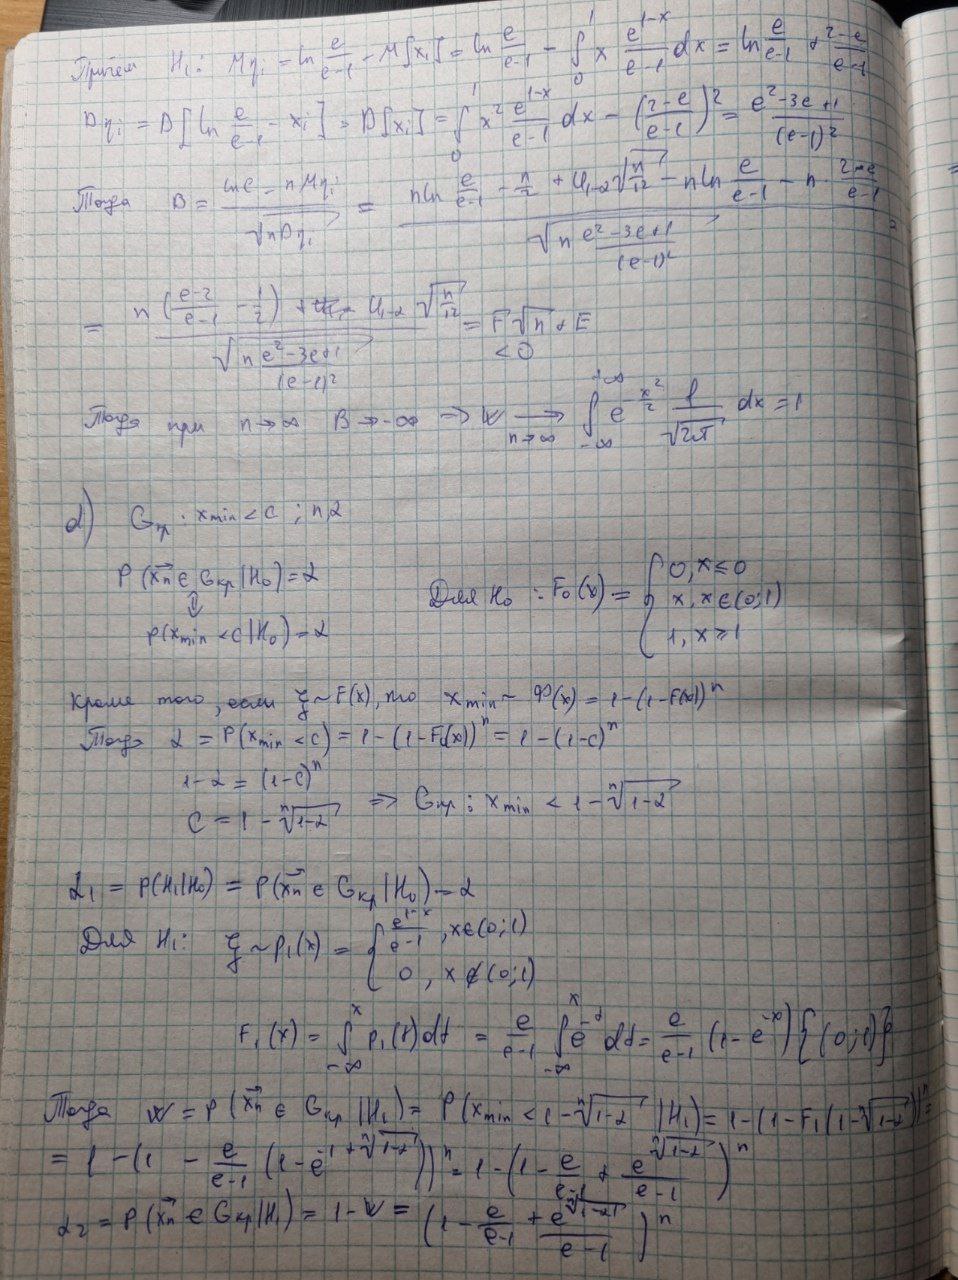 Причем H₁: Mηᵢ = ln e/(e-1) - M[xᵢ] = ln e/(e-1) - ∫₀¹ x e^(1-x)/(e-1) dx = ln e/(e-1) + (2-e)/(e-1)
Dηᵢ = D[ln e/(e-1) - xᵢ] = D[xᵢ] = ∫₀¹ x² e^(1-x)/(e-1) dx - ((2-e)/(e-1))² = (e²-3e+1)/(e-1)²
Тогда B = (ln C - nMηᵢ)/√(nDηᵢ) = (n ln e/(e-1) - n/2 + U₁₋α √(n/12) - n ln e/(e-1) - n (2-e)/(e-1))/√(n (e²-3e+1)/(e-1)²) =
= (n((e-2)/(e-1) - 1/2) + U₁₋α √(n/12))/√(n (e²-3e+1)/(e-1)²) = F√n + E
< 0
Тогда при n→∞ B→-∞ ⇒ W →(n→∞) ∫₋∞^(+∞) e^(-x²/2) 1/√(2π) dx = 1
d) Gкр : xmin < c ; n, α
P(x⃗n ∈ Gкр | H₀) = α
⇕
P(xmin < c | H₀) = α
Для H₀ : F₀(x) = { 0, x ≤ 0
x, x ∈ (0;1)
1, x ≥ 1
Кроме того, если ξ ~ F(x), то xmin ~ Φ(x) = 1-(1-F(x))ⁿ
Тогда α = P(xmin < c) = 1-(1-F₀(x))ⁿ = 1-(1-c)ⁿ
1-α = (1-c)ⁿ
c = 1 - ⁿ√(1-α) ⇒ Gкр : xmin < 1 - ⁿ√(1-α)
α₁ = P(H₁|H₀) = P(x⃗n ∈ Gкр | H₀) = α
Для H₁: ξ ~ p₁(x) = { e^(1-x)/(e-1), x ∈ (0;1)
0, x ∉ (0;1)
F₁(x) = ∫₋∞^x p₁(t)dt = e/(e-1) ∫₋∞^x e^(-t) dt = e/(e-1) (1-e^(-x)) {(0;1)}
Тогда W = P(x⃗n ∈ Gкр | H₁) = P(xmin < 1 - ⁿ√(1-α) | H₁) = 1-(1-F₁(1-ⁿ√(1-α)))ⁿ =
= 1-(1 - e/(e-1) (1-e^(-1+ⁿ√(1-α))))ⁿ = 1-(1 - e/(e-1) + e^(ⁿ√(1-α))/(e-1))ⁿ
α₂ = P(x⃗n ∈ Gкр | H₁) = 1-W = (1 - e/(e-1) + e^(ⁿ√(1-α))/(e-1))ⁿ